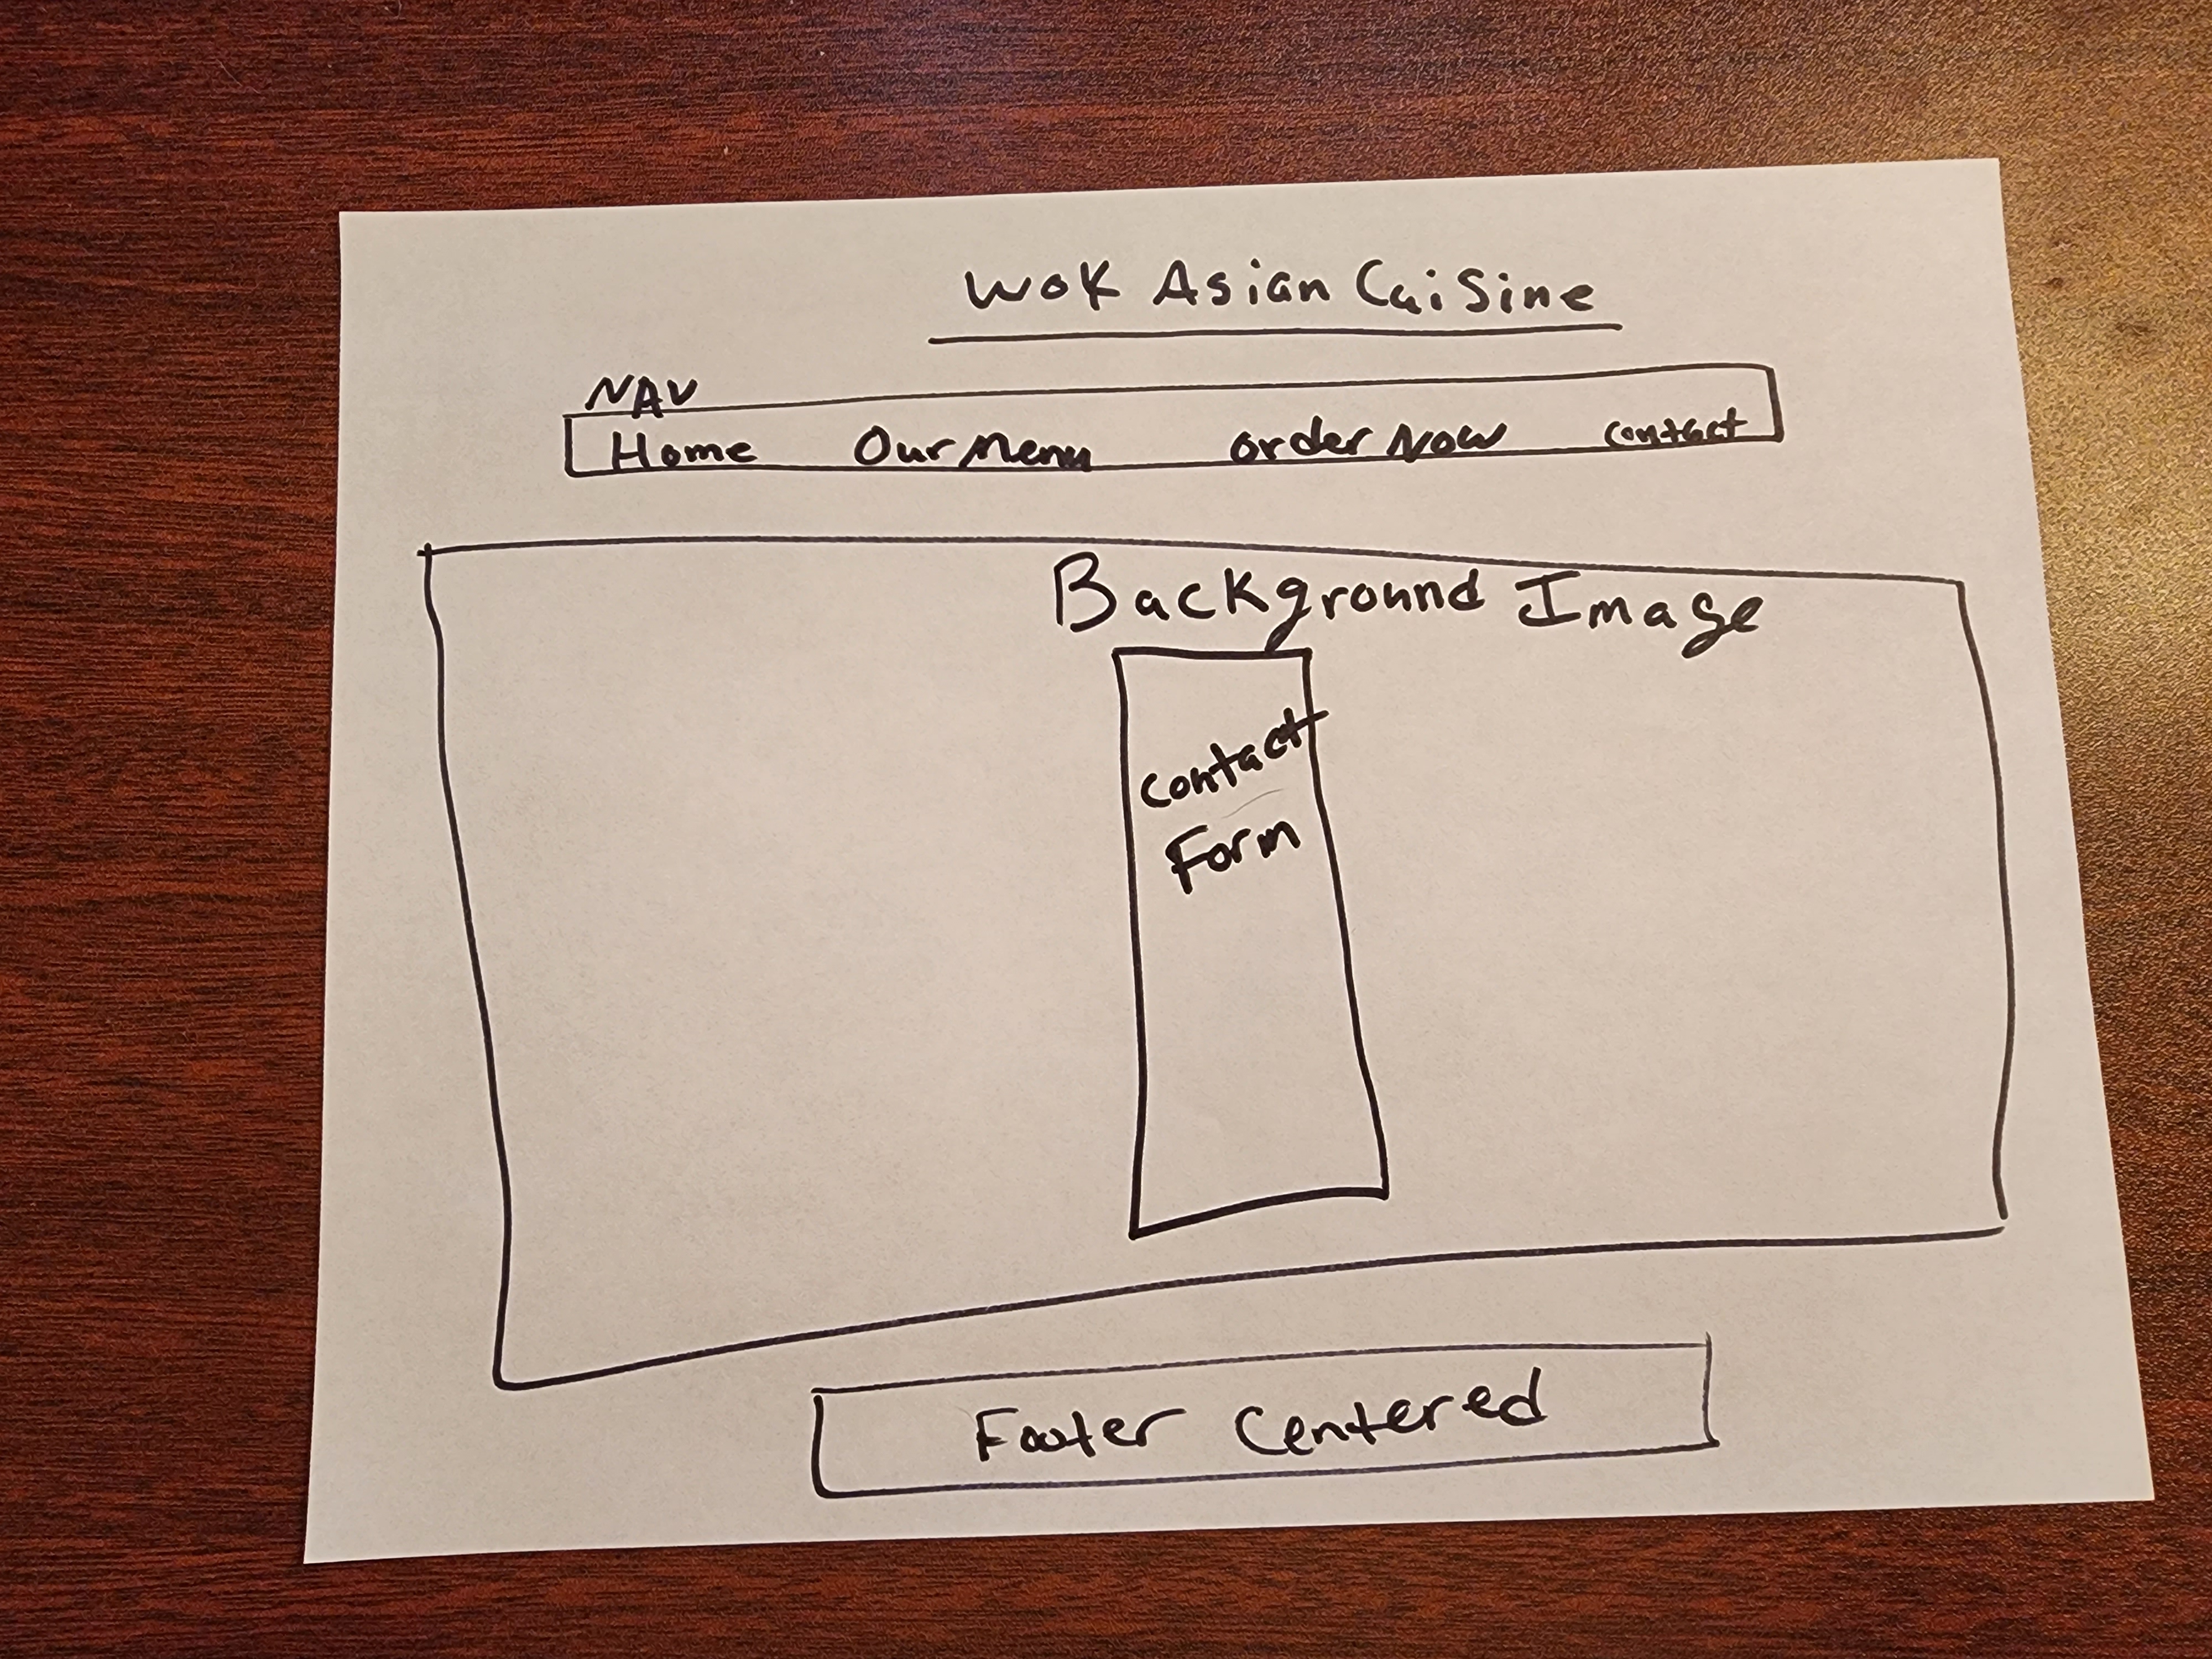 Wok Asian Cuisine
NAV
Home Our Menu Order Now Contact
Background Image
Contact
Form
Footer Centered